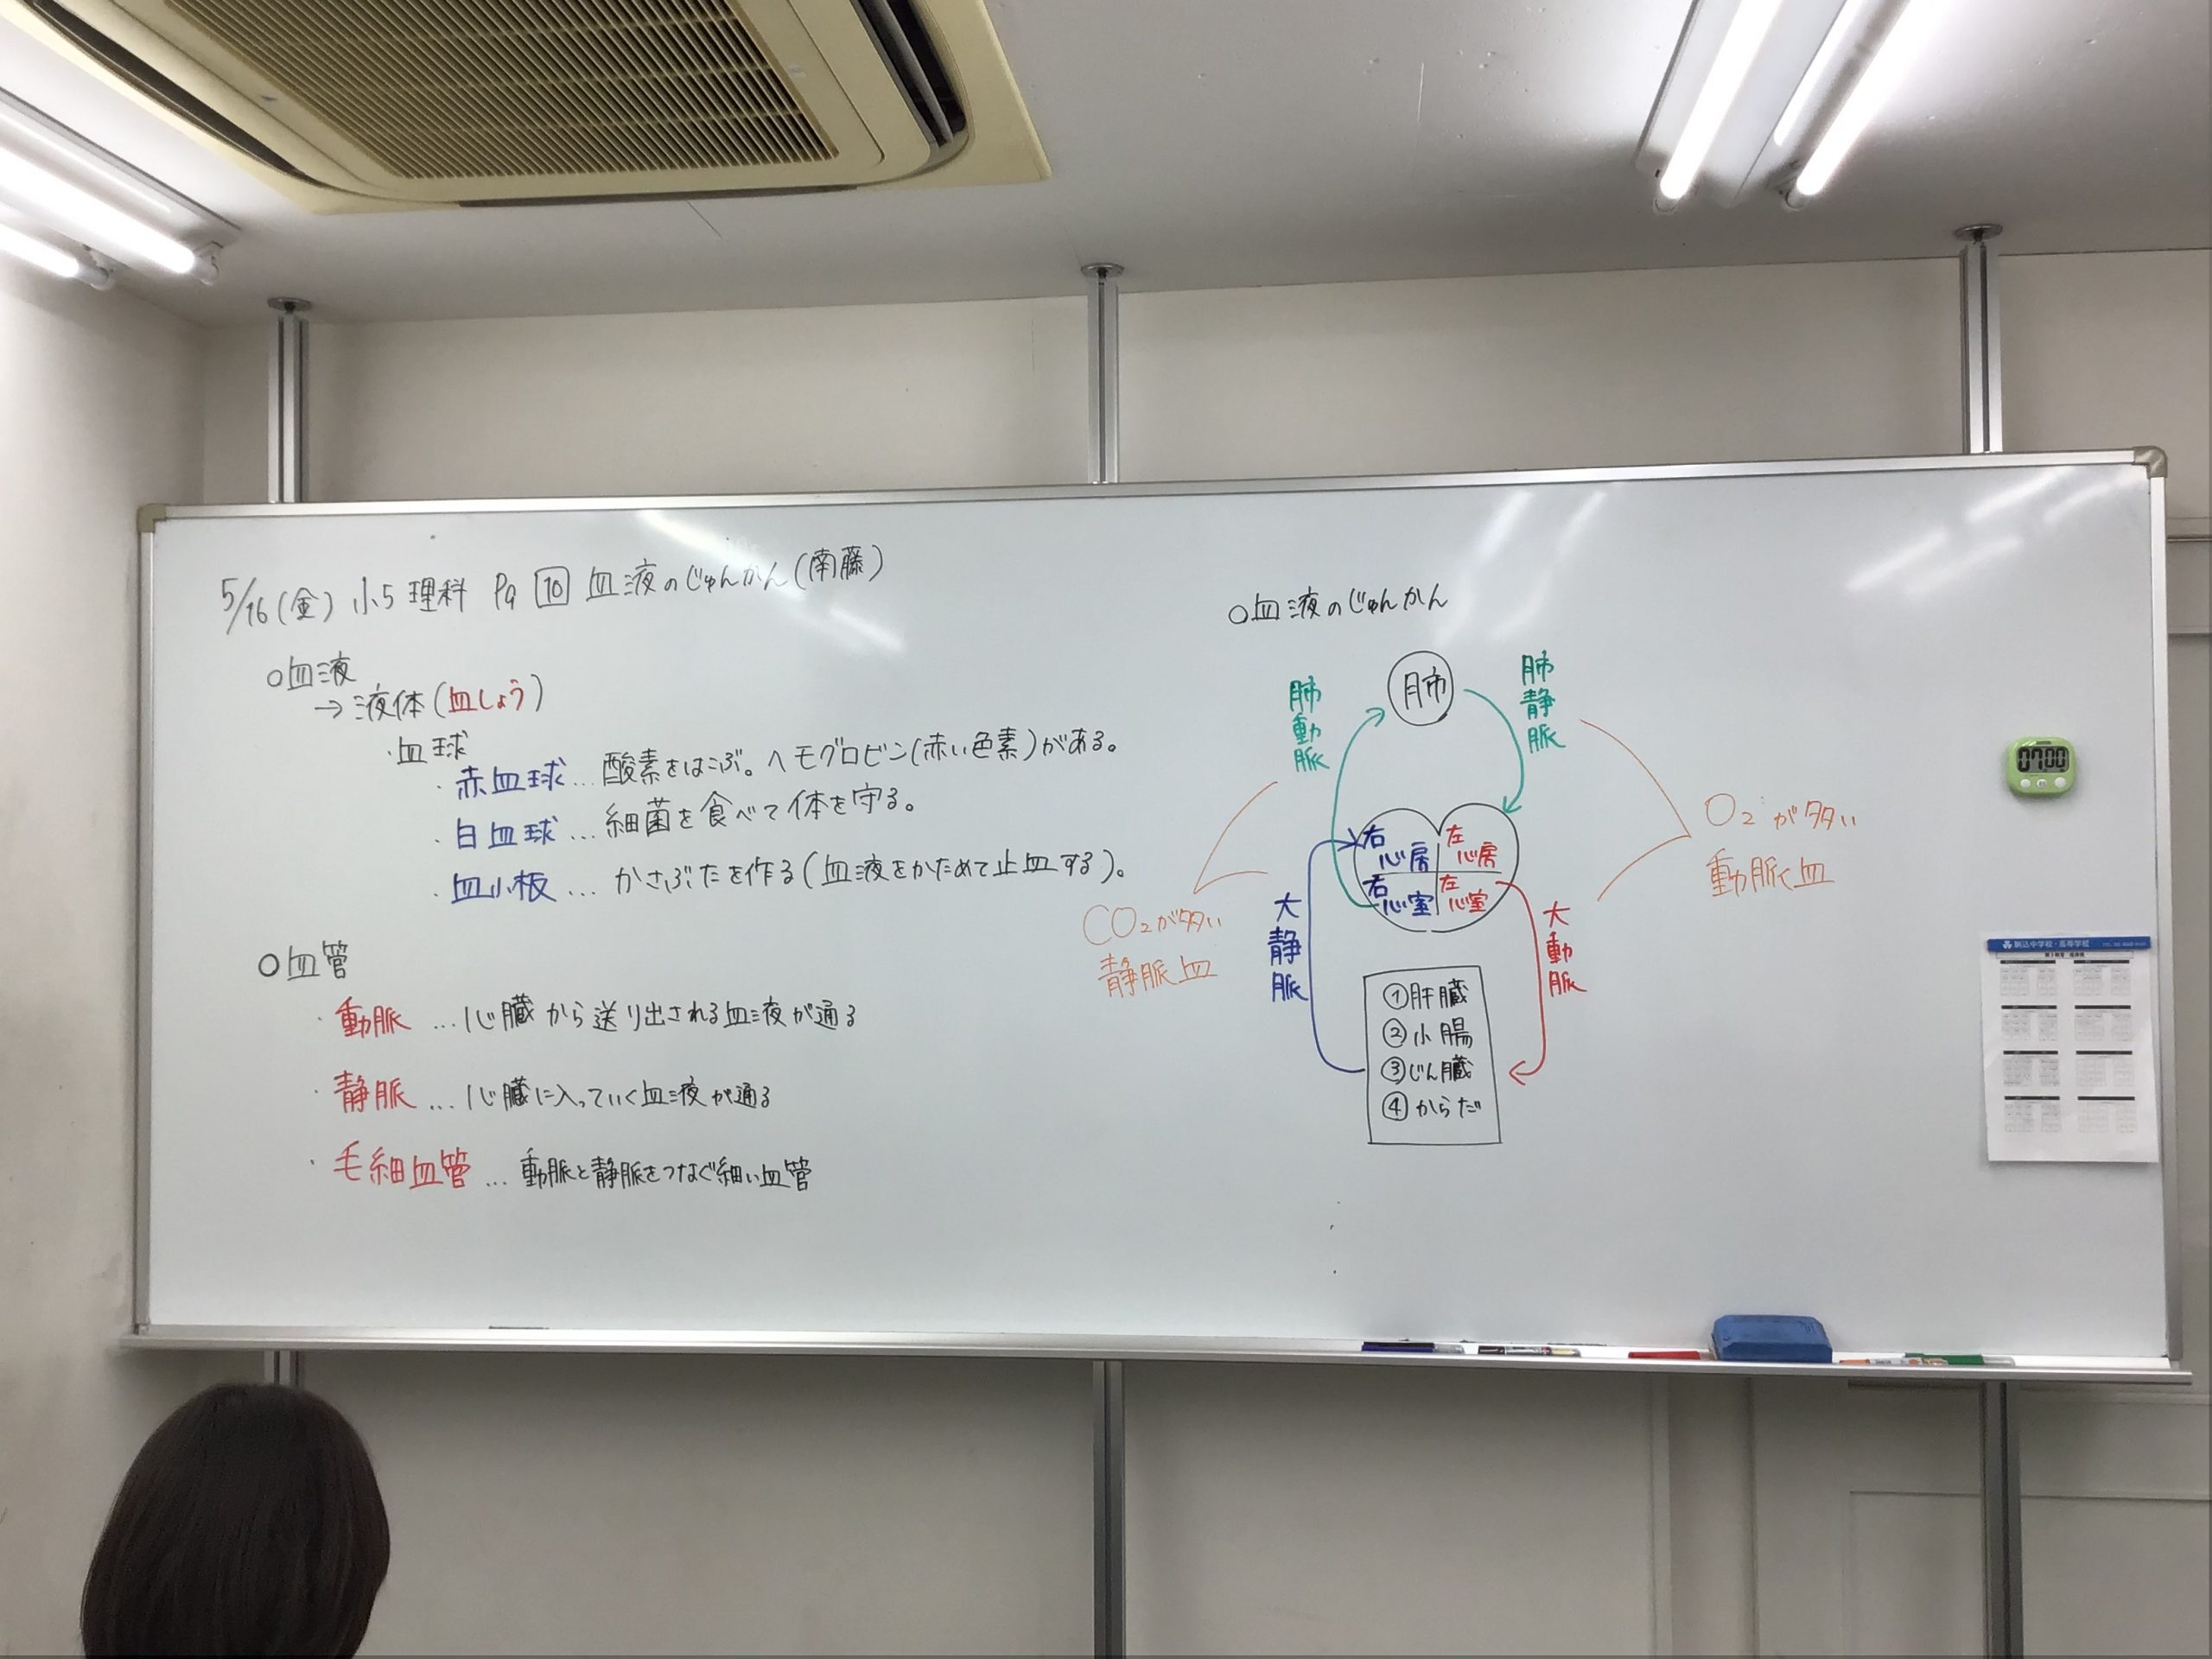 5/16(金) 小5 理科 Pa 10 血液のじゅんかん(南藤)
○血液
→液体(血しょう)
・血球
・赤血球…酸素をはこぶ。ヘモグロビン(赤い色素)がある。
・白血球…細菌を食べて体を守る。
・血小板…かさぶたを作る(血液をかためて止血する)。
○血管
・動脈…心臓から送り出される血液が通る
・静脈…心臓に入っていく血液が通る
・毛細血管…動脈と静脈をつなぐ細い血管
○血液のじゅんかん
肺
肺動脈
肺静脈
右心房
左心房
右心室
左心室
大静脈
大動脈
CO₂が多い
静脈血
O₂が多い
動脈血
①肝臓
②小腸
③じん臓
④からだ
07:00
駒込中学校・高等学校